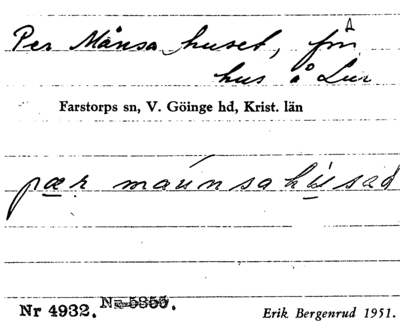 Per Månsa huset, frå
hus å Lur
Farstorps sn, V. Göinge hd, Krist. län
pær måunsahúsad
Nr 4932. Nr 5355.
Erik Bergenrud 1951.